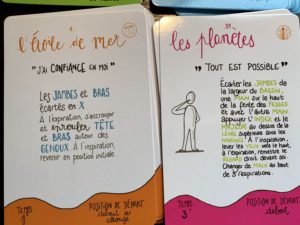 4
l'Étoile de mer
"J'AI CONFIANCE EN MOI"
Les JAMBES et BRAS
écartés en X
À l'expiration, s'accroupir
et enrouler TÊTE
et BRAS autour des
GENOUX À l'inspiration,
revenir en position initiale.
TEMPS
POSITION DE DÉPART
debout ou
allongé
les planètes
"TOUT EST POSSIBLE"
Écarter les JAMBES de
la largeur du BASSIN,
une MAIN sur le haut
de la fente des FESSES
et avec l'autre MAIN
appuyer l'INDEX et le
MAJEUR au dessus de la
LÈVRE supérieure sous les
NARINES. À l'inspiration
lever les YEUX vers le haut,
à l'expiration, remettre le
REGARD droit devant soi.
Changer de MAIN au bout
de 3 respirations.
TEMPS
3'
POSITION DE DÉPART
debout